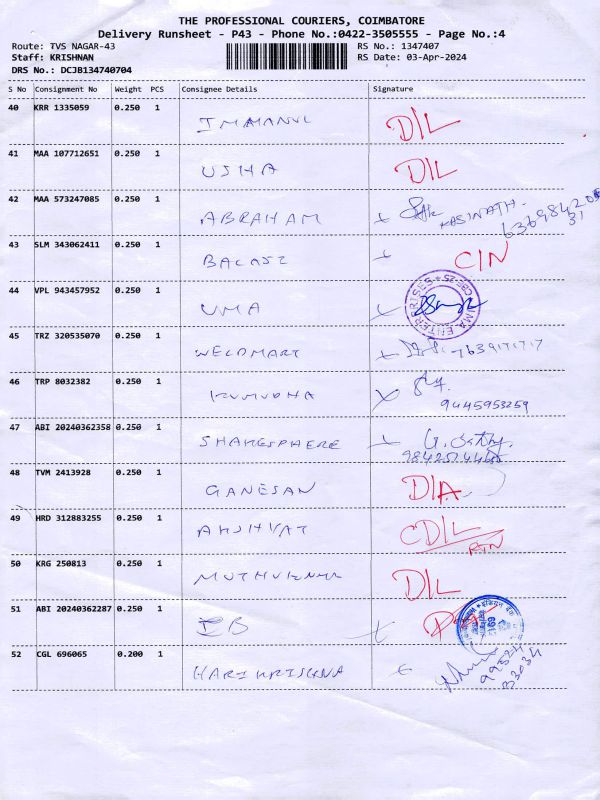 THE PROFESSIONAL COURIERS, COIMBATORE
Delivery Runsheet - P43 - Phone No.:0422-3505555 - Page No.:4
Route: TVS NAGAR-43 RS No.: 1347407
Staff: KRISHNAN RS Date: 03-Apr-2024
DRS No.: DCJB134740704
S No Consignment No Weight PCS Consignee Details Signature
40 KRR 1335059 0.250 1 IMMANUL D/L
41 MAA 107712651 0.250 1 USHA D/L
42 MAA 573247085 0.250 1 ABRAHAM KASINATH
43 SLM 343062411 0.250 1 BALAJI C/N
44 VPL 943457952 0.250 1 UMA UMA ENTERPRISES CBE-25
45 TRZ 320535070 0.250 1 WELDMART
46 TRP 8032382 0.250 1 KUMUDHA
9445953259
47 ABI 20240362358 0.250 1 SHAKESPHERE
48 TVM 2413928 0.250 1 GANESAN D/A
49 HRD 312883255 0.250 1 CD/L
50 KRG 250813 0.250 1 D/L
51 ABI 20240362287 0.250 1 IB
52 CGL 696065 0.200 1 HARIKRISHNA